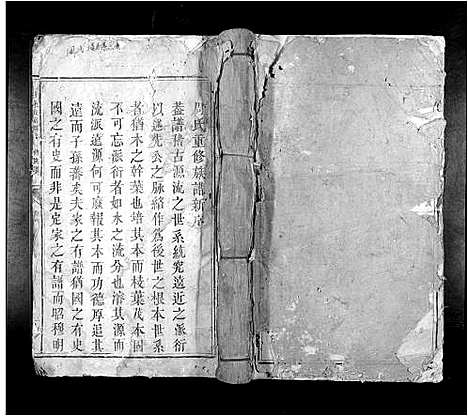 氏重修族譜新序
蓋譜稽古源流之世系究遠近之派衍
以遠先公之脉絡作爲後世之根本世系
者猶木之幹葉也培其本而枝葉茂本固
不可忘派衍者如水之流分也濬其源而
流派遠源何可廢報其本而功德厚追其
遠而子孫善矣夫家之有譜猶國之有史
國之有史而非是定家之有譜而昭穆明